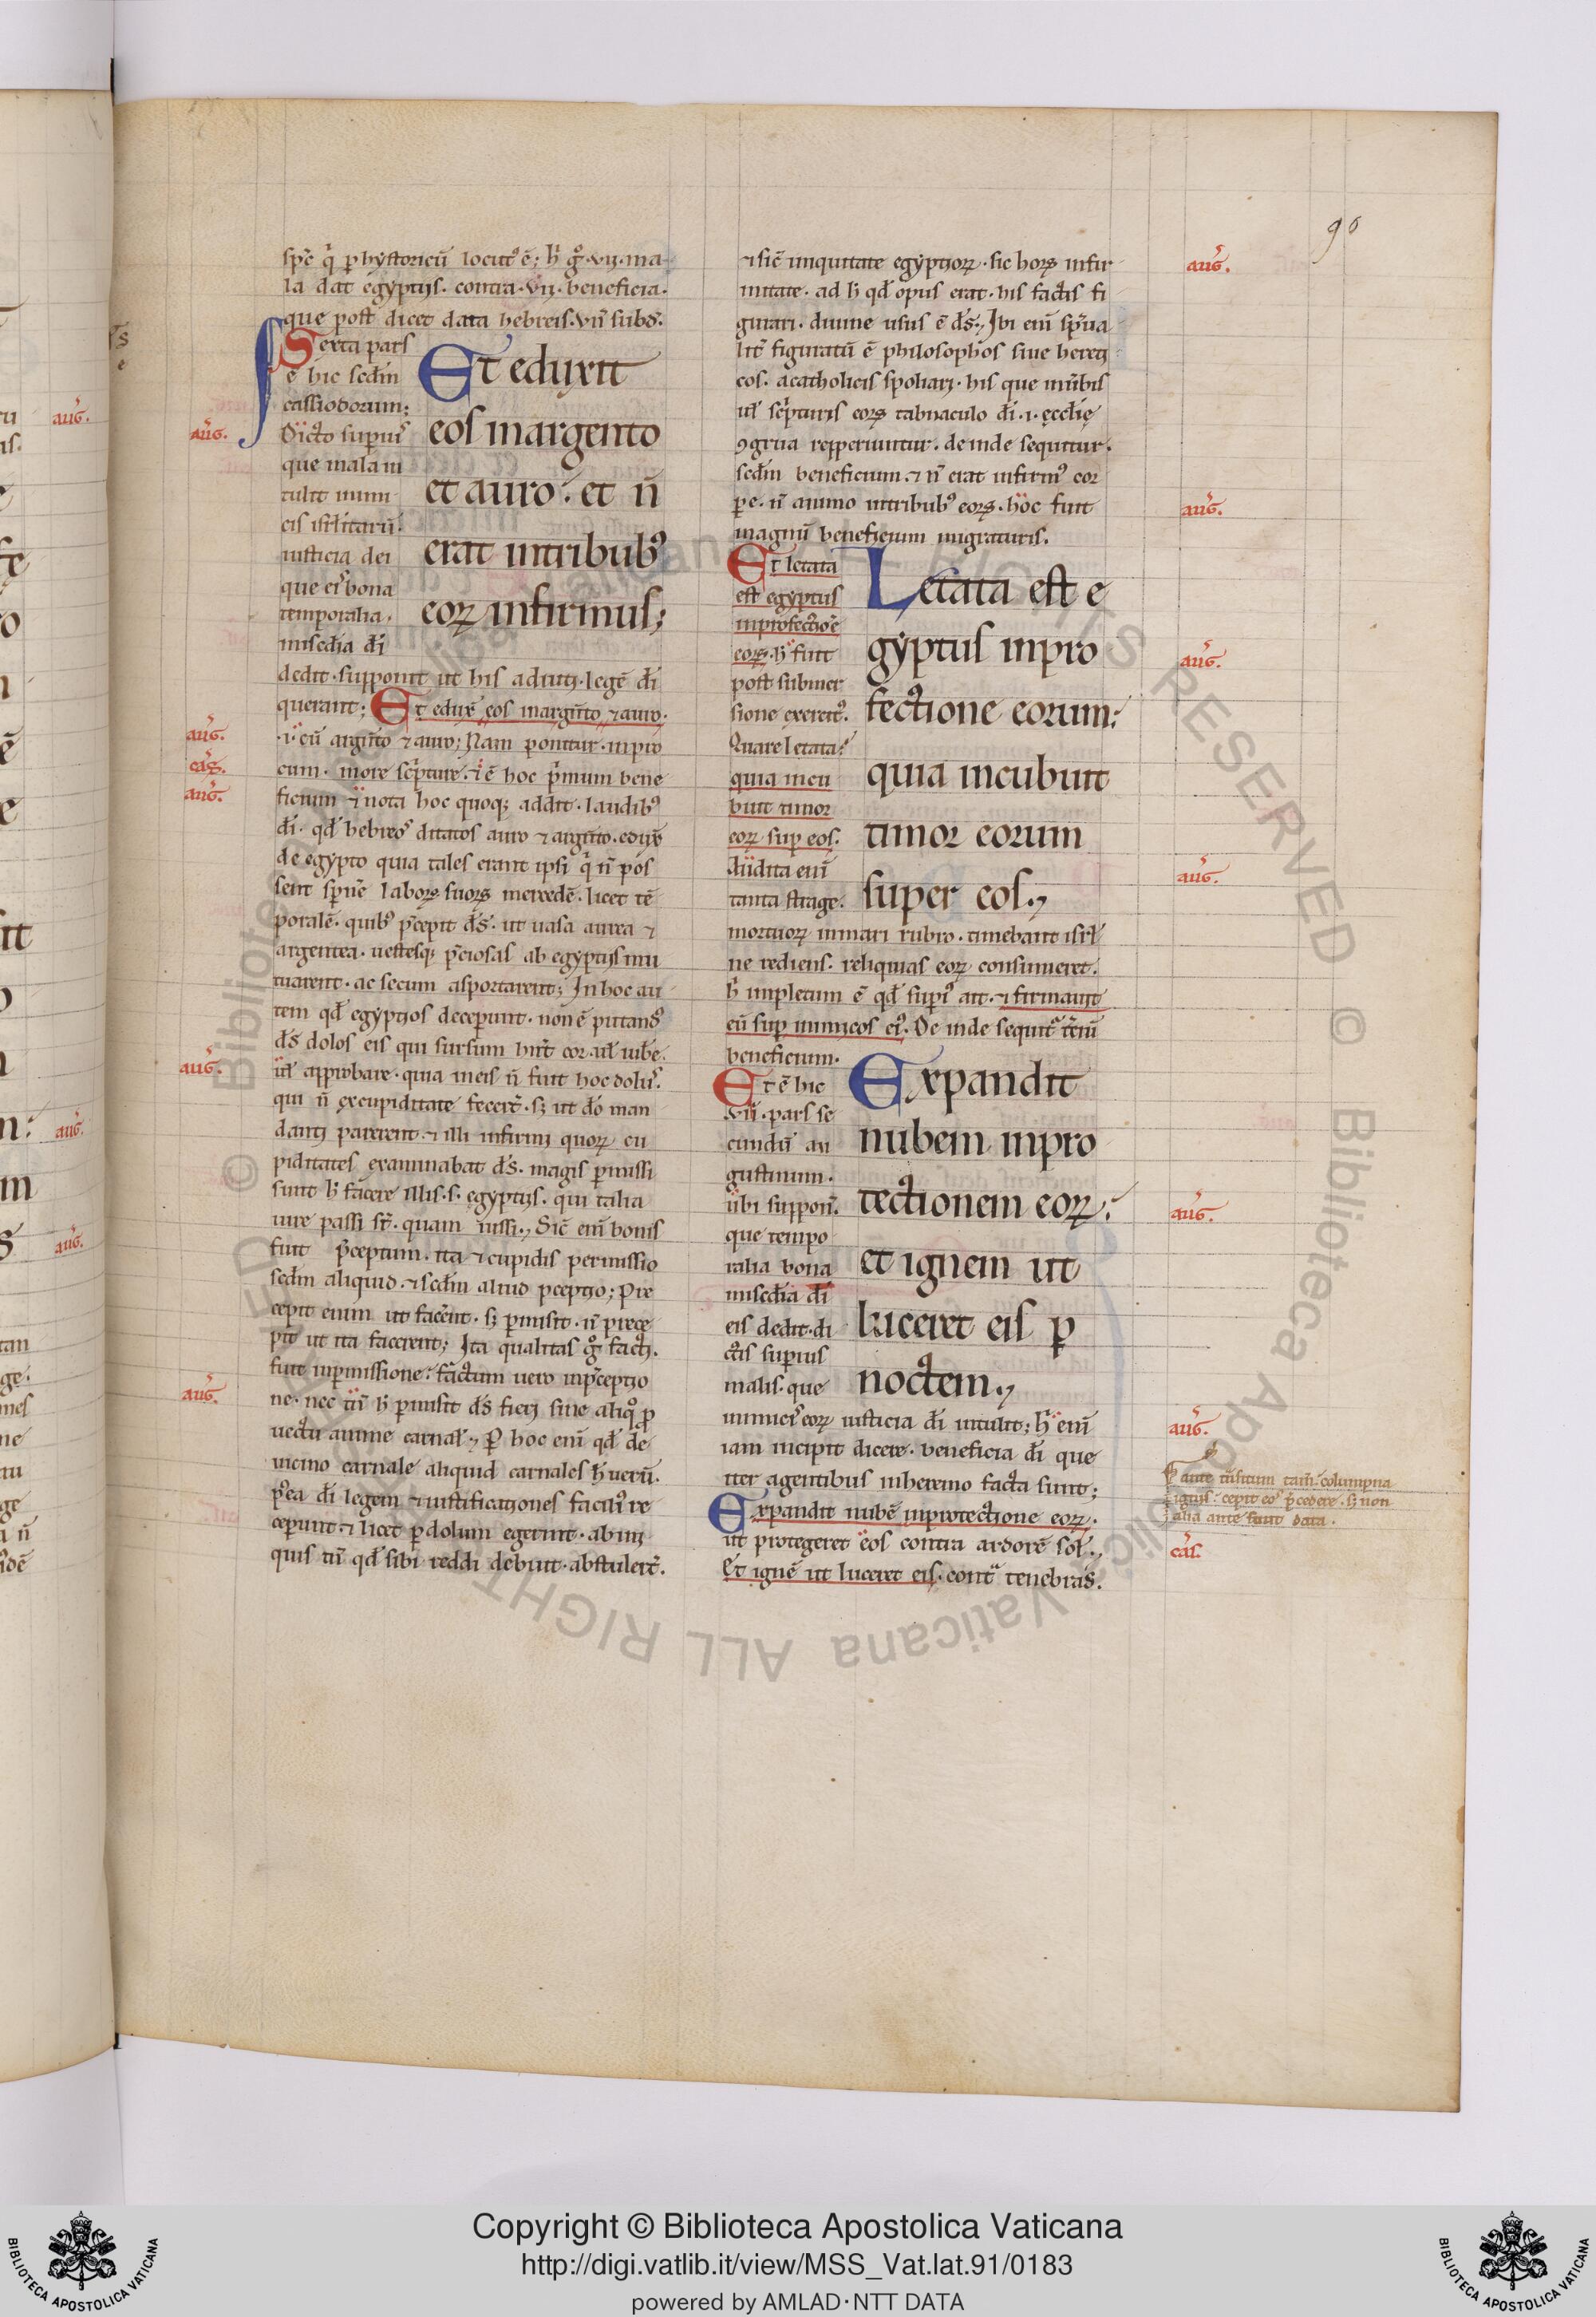 96
sp̄c q̇ p hystoricū locut᷒ ē; h̄ gͦ .vij. ma
la dat egyptijs. contra .vij. beneficia.
que post dicet data hebreis. vn̄ subd̄.
Sexta pars
ē hic sed̄m
cassiodorum;
Dicto superius
que mala in
tulit inimi
cis isrl̄itarū
iusticia dei
que eis bona
temporalia
mīsedia dī
Et eduxit
eos in argento
et auro: et ñ
erat in tribub᷒
eoꝝ infirmus;
dedit. supponit ut his adiuti. legē dī
querant; Et eduxͭ eos in argn̄to ⁊ auro.
.i. cū argn̄to ⁊ auro; Nam ponitur. in pro
cum. more scͥpture. ⁊ ē hoc pͥmum bene
ficium ⁊ nota hoc quoqꝫ addit. laudib᷒
dī. qđ hebreos ditatos auro ⁊ argn̄to. eduxͭ
de egypto quia tales erant ipsi q̇ n̄ pos
sent spn̄e laboꝝ suoꝝ mercedē. licet tē
poralē. quib᷒ p̄cepit d̄s. ut uasa aurea ⁊
argentea. uestesqꝫ p̄ciosas ab egyptijs mu
tuarent. ac secum asportarent; In hoc au
tem qđ egyptios deceperunt. non ē putand᷒
d̄s dolos eis qui sursum hn̄t cor. ul̄ iubē.
ul̄ approbare. quia in eis n̄ fuit hoc dolus.
qui n̄ ex cupiditate fecert̄. sꝫ ut dō man
danti parerent. ⁊ illi infirmi quoꝝ cu
piditates examinabat d̄s. magis pmissi
sunt h̄ facere illis .s. egyptijs. qui talia
iure passi st̄. quam iussi. Sic̄ enī bonis
fuit p̄ceptum. ita ⁊ cupidis permissio
sed̄m aliquid. ⁊ sed̄m aliud pceptio; Pre
cepit enim ut facerent. sꝫ pmisit. n̄ prece
pit ut ita facerent; Ita qualitas gͦ facti.
fuit in pmissione: factum uero in p̄ceptio
ne. nec tn̄ h̄ pmisit d̄s fieri sine aliqͦ p
uectu anime carnal̄. P hoc enī qđ de
uicino carnale aliquid carnales hūerū.
p̄ea dī legem ⁊ iustificationes facili᷒ re
ceperunt ⁊ licet p dolum egerint. ab inj
quis tn̄ qđ sibi reddi debuit. abstulert̄.
⁊ sic̄ iniquitate egyptioꝝ. sic hoꝝ infir
mitate. ad h̄ qđ opus erat. his factis fi
gurari. diuine usus ē d̄s. Ibi enī spūa
lit̄ figuratū ē philosophos siue hereti
cos. a catholicis spoliari. his que in nūbis
ul̄ scͥpturis eoꝝ tabnaculo dī .i. ęcclię
ꝯgrua repperiuntur. deinde sequitur.
sed̄m beneficium. ⁊ n̄ erat infirm᷒ cor
pe. n̄ animo in tribub᷒ eoꝝ. hoc fuit
magnū beneficium migraturis.
Et letata
est egyptus
in profectiōe
eoꝝ. h̄ fuit
post submer
sione exercit᷒.
Quare letata?
quia incu
buit timor
eoꝝ sup eos.
Audita enī
tanta strage.
Letata est e
gyptus in pro
fectione eorum:
quia incubuit
timor eorum
super eos.
mortuoꝝ in mari rubro. timebant isrl̄
ne rediens. reliquias eoꝝ consumeret.
h̄ impletum ē qđ supi᷒ ait. ⁊ firmauit
eū sup inimicos ei᷒. Deinde sequit̄ t̄ciū
beneficium.
Et ē hic
.vij. pars se
cundū au
gustinum.
ubi suppon̄.
que tempo
ralia bona
mīsedia dī
eis dedit. di
ctis superius
malis. que
Expandit
nubem in pro
tectionem eoꝝ:
et ignem ut
luceret eis p
noctem.
inimicis eoꝝ iusticia dī intulit; h̄ enī
iam incipit dicere. beneficia dī que
iter agentibus in heremo facta sunt;
Expandit nubē in protectione eoꝝ.
ut protegeret eos contra ardorē sol̄.
Et ignē ut luceret eis. contͣ tenebras.
aug̃.
aug̃.
cas̃.
aug̃.
aug̃.
aug̃.
aug̃.
aug̃.
aug̃.
aug̃.
aug̃.
aug̃.
ante tn̄situm tam̄. columpna
ignis. cepit eos p̄cedere. sꝫ non
alia ante fuit data.
cas̃.
© Biblioteca Apostolica Vaticana ALL RIGHTS RESERVED
Copyright © Biblioteca Apostolica Vaticana
http://digi.vatlib.it/view/MSS_Vat.lat.91/0183
powered by AMLAD·NTT DATA
BIBLIOTECA APOSTOLICA VATICANA
BIBLIOTECA APOSTOLICA VATICANA